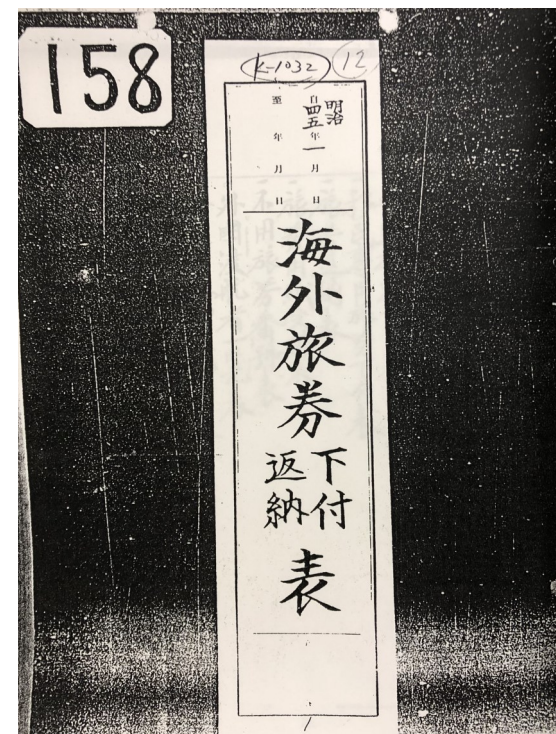 158
K-1032
12
自明治四五年一月 日
至 年 月 日
海外旅券下付返納表